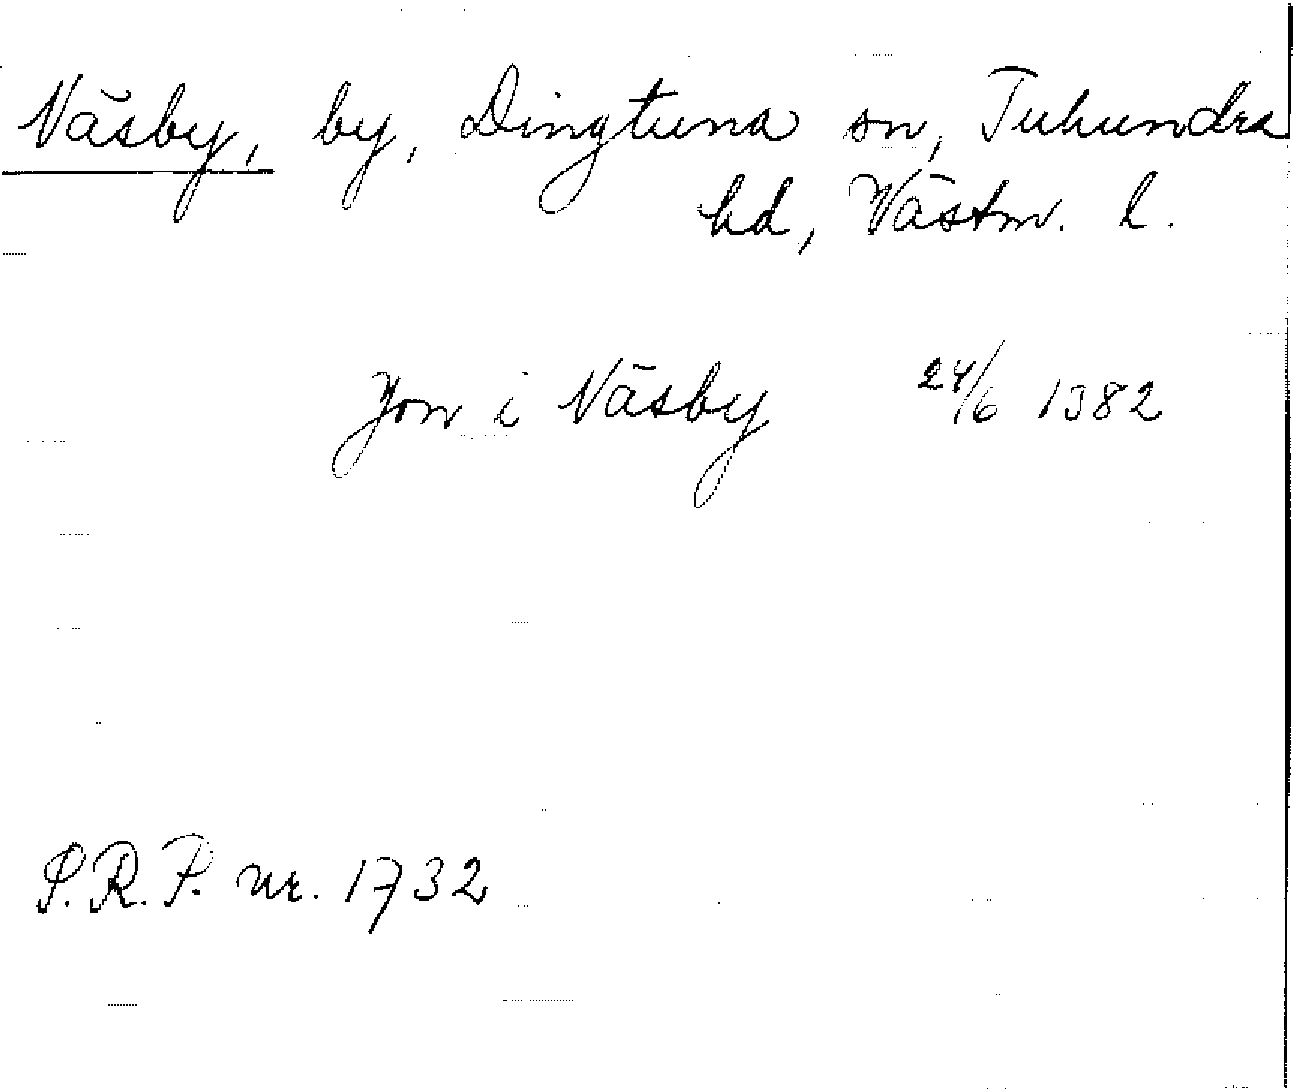 Näsby, by, Dingtuna sn, Tuhundra
hd, Västm. l.
Jon i Näsby 24/6 1382
S.R.P. nr. 1732